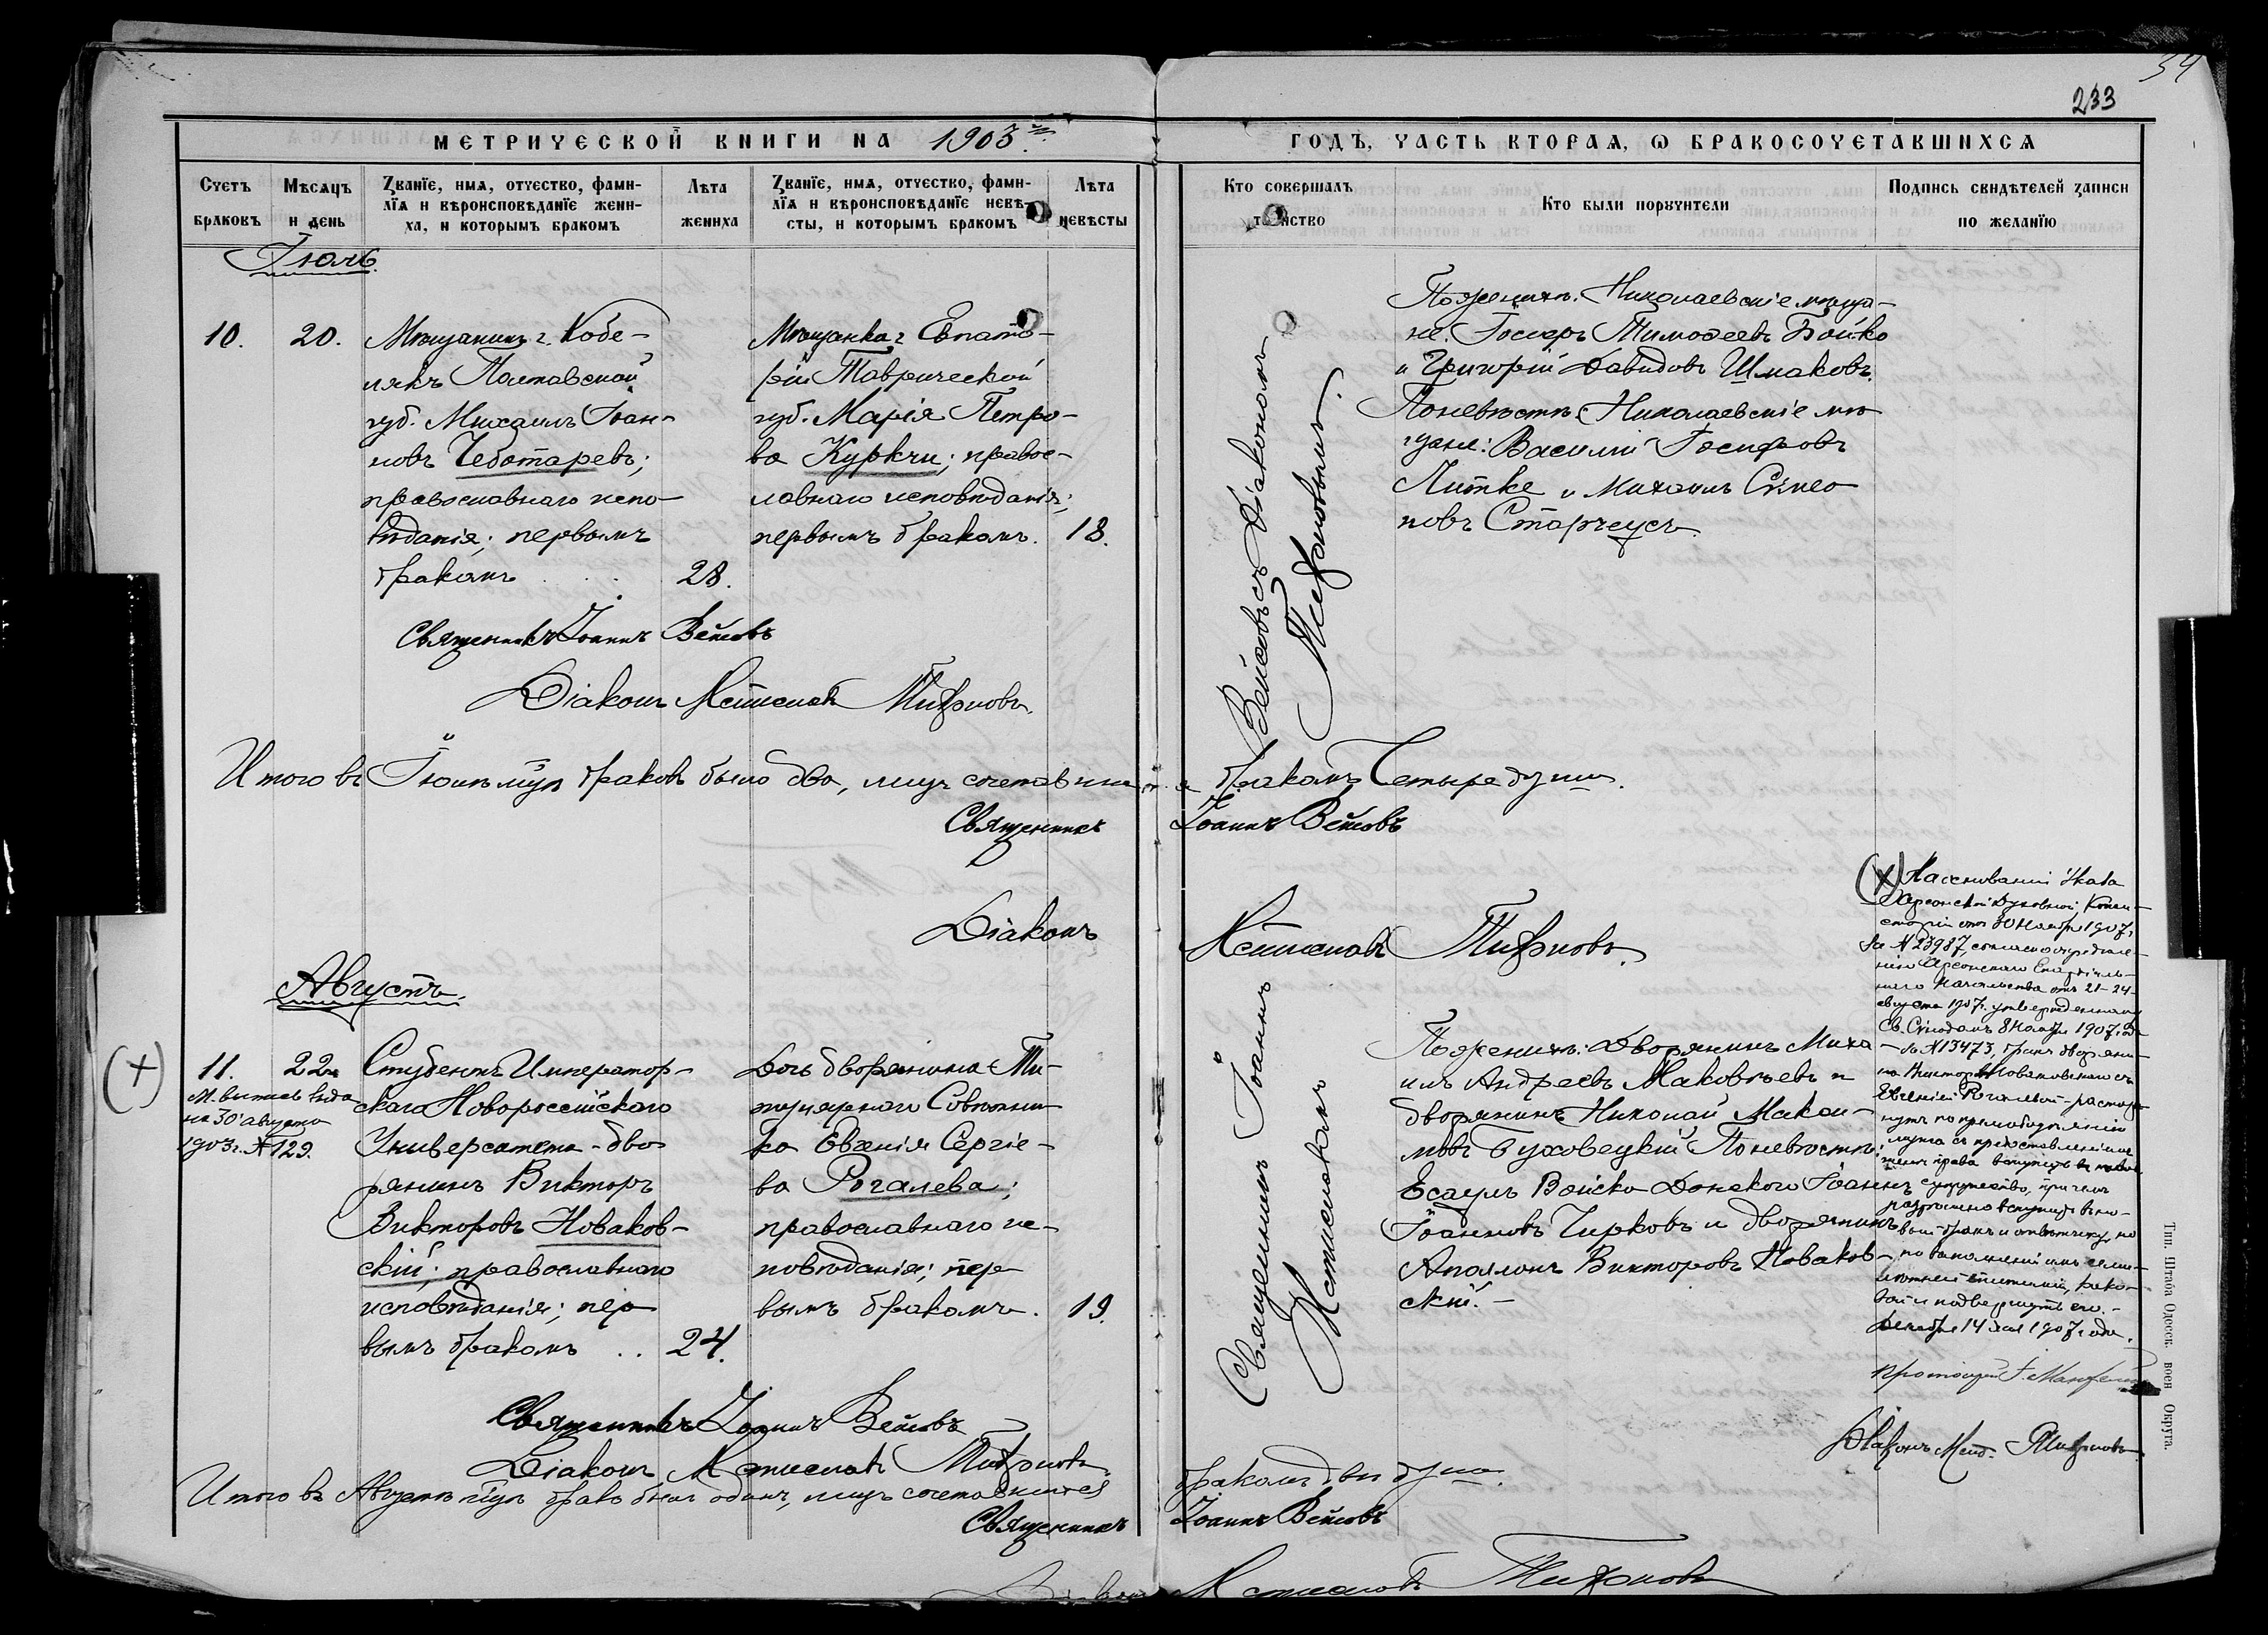 34
233
МЕТРИЧЕСКОЙ КНИГИ НА 1903
ГОДЪ, ЧАСТЬ ВТОРАЯ, Ѡ БРАКОСОЧЕТАВШИХСЯ
Счетъ браковъ
Мѣсяцъ и день
Званіе, имя, отчество, фами-
лія и вѣроисповѣданіе жени-
ха, и которымъ бракомъ
Лѣта жениха
Званіе, имя, отчество, фами-
лія и вѣроисповѣданіе невѣ-
сты, и которымъ бракомъ
Лѣта невѣсты
Кто совершалъ
таинство
Кто были поручители
Подпись свидѣтелей записи
по желанію
Іюль.
10.
20.
Мѣщанинъ г. Кобе-
лякъ Полтавской
губ. Михаилъ Іоан-
новъ Чеботаревъ;
православнаго испо-
вѣданія; первымъ
бракомъ . .
28.
Мѣщанка г. Евпато-
ріи Таврической
губ. Марія Петро-
ва Куркчи; правос-
лавнаго исповѣданія;
первымъ бракомъ.
18.
Вейсовъ съ діакономъ
Тифоновымъ.
По женихѣ: Николаевскіе мѣща-
не: Іосифъ Тимофеевъ Бойко
и Григорій Давидовъ Шмаковъ.
По невѣстѣ: Николаевскіе мѣ-
щане: Василій Іосифовъ
Литке и Михаилъ Сѵмео-
новъ Старчеусъ.
Священникъ Іоаннъ Вейсовъ
Діаконъ Мстиславъ Тифоновъ.
Итого въ Іюлѣ м-цѣ браковъ было два, лицъ сочетавшихся бракомъ четыре души.
Священникъ Іоаннъ Вейсовъ
Діаконъ Мстиславъ Тифоновъ.
Августъ.
(+)
11.
22.
М. выпись выда
на 30 августа
1903 г. № 129.
Студентъ Император-
скаго Новороссійскаго
Университета - дво-
рянинъ Викторъ
Викторовъ Новаков-
скій; православнаго
исповѣданія; пер-
вымъ бракомъ . .
24.
Дочь дворянина Ти-
тулярнаго Совѣтни-
ка Евгенія Сергіе-
ва Рогалева;
православнаго ис-
повѣданія; пер-
вымъ бракомъ.
19.
Священникъ Іоаннъ
Мстиславомъ
По женихѣ: Дворянинъ Миха-
илъ Андреевъ Маковѣевъ и
дворянинъ Николай Макси-
мовъ Буховецкій. По невѣстѣ:
Есаулъ Войска Донского Іоаннъ
Іоанновъ Чирковъ и дворянинъ
Аполлонъ Викторовъ Новаков-
скій. -
(+) На основаніи Указа
Херсонской Духовной Консис-
торіи отъ 30 Ноября 1907 г.
за № 23987, согласно опредѣле-
нію Херсонскаго Епархіаль-
наго Начальства отъ 21-24
августа 1907 г. утвержденному
Св. Сѵнодомъ 8 Ноября 1907 года
за № 13473, бракъ дворяни-
на Виктора Новаковскаго съ
Евгеніей Рогалевой - расторг-
нутъ по прелюбодѣянію
мужа съ предоставленіемъ
женѣ права вступить въ новое
супружество, причемъ
разрѣшено вступить въ но-
вый бракъ и отвѣтчику, но
по выполненіи имъ семи-
лѣтней епитиміи, како-
вой и подвергнуть его. -
Декабря 14 дня 1907 года.
Протоіерей
Діаконъ Мст. Тифоновъ
Священникъ Іоаннъ Вейсовъ
Діаконъ Мстиславъ Тифоновъ
Итого въ Августѣ м-цѣ бракъ былъ одинъ, лицъ сочетавшихся бракомъ двѣ души.
Священникъ Іоаннъ Вейсовъ
Діаконъ Мстиславъ Тифоновъ
Тип. Штаба Одесск. воен Округа.